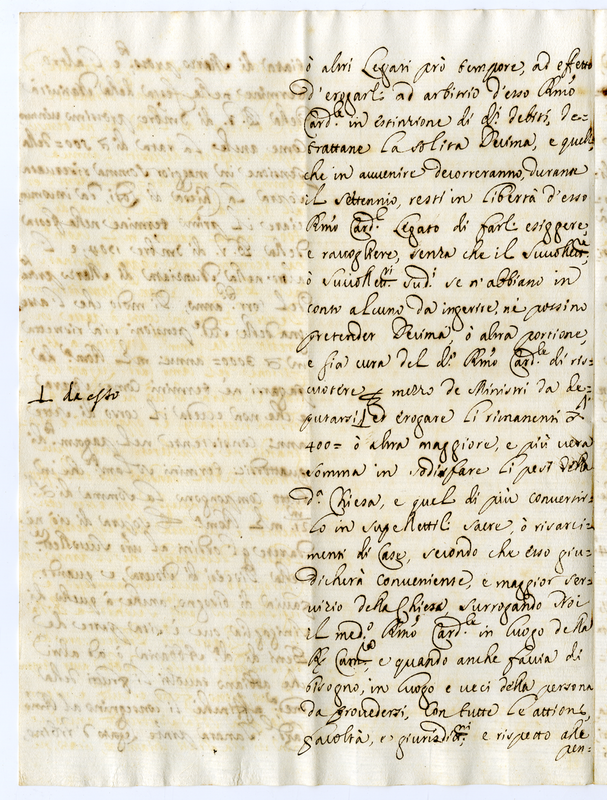 ò altri Legati prò tempore, ad effetto
d'erogarli ad arbitrio d'esso Rmo
Card.le in estinzione di d.i debiti, de=
trattane la solita Decima, e quelli
che in avvenire decorreranno, durante
il Settennio, resti in libertà d'esso
Rmo Card.le Legato di farli esiggere,
e raccogliere, senza che il Succollett.re
ò Succollett.ri Sud.i se n'abbiano in
conto alcuno da ingerire, nè possino
pretender Decima, ò altra portione,
e sia cura del d.o Rmo Card.le di ris=
cuotere p mezzo de Ministri da De=
putarsi ed erogare li rimanenti
⊥ da esso
400= ò altra maggiore, e più vera
somma in sodisfare li pesi della
d.a Chiesa, e quel di più convertir=
lo in supellettili sacre, ò risarci=
menti di Case, secondo che esso giu=
dicherà conveniente, e maggior ser=
vizio della Chiesa surrogando Noi
il med.o Rmo Card.le in luogo della
R. Cam.ra e quando anche faccia di
bisogno, in luogo e veci della persona
da provedersi, con tutte le attioni,
facoltà, e giurisditt.ni e rispetto alle
pen=